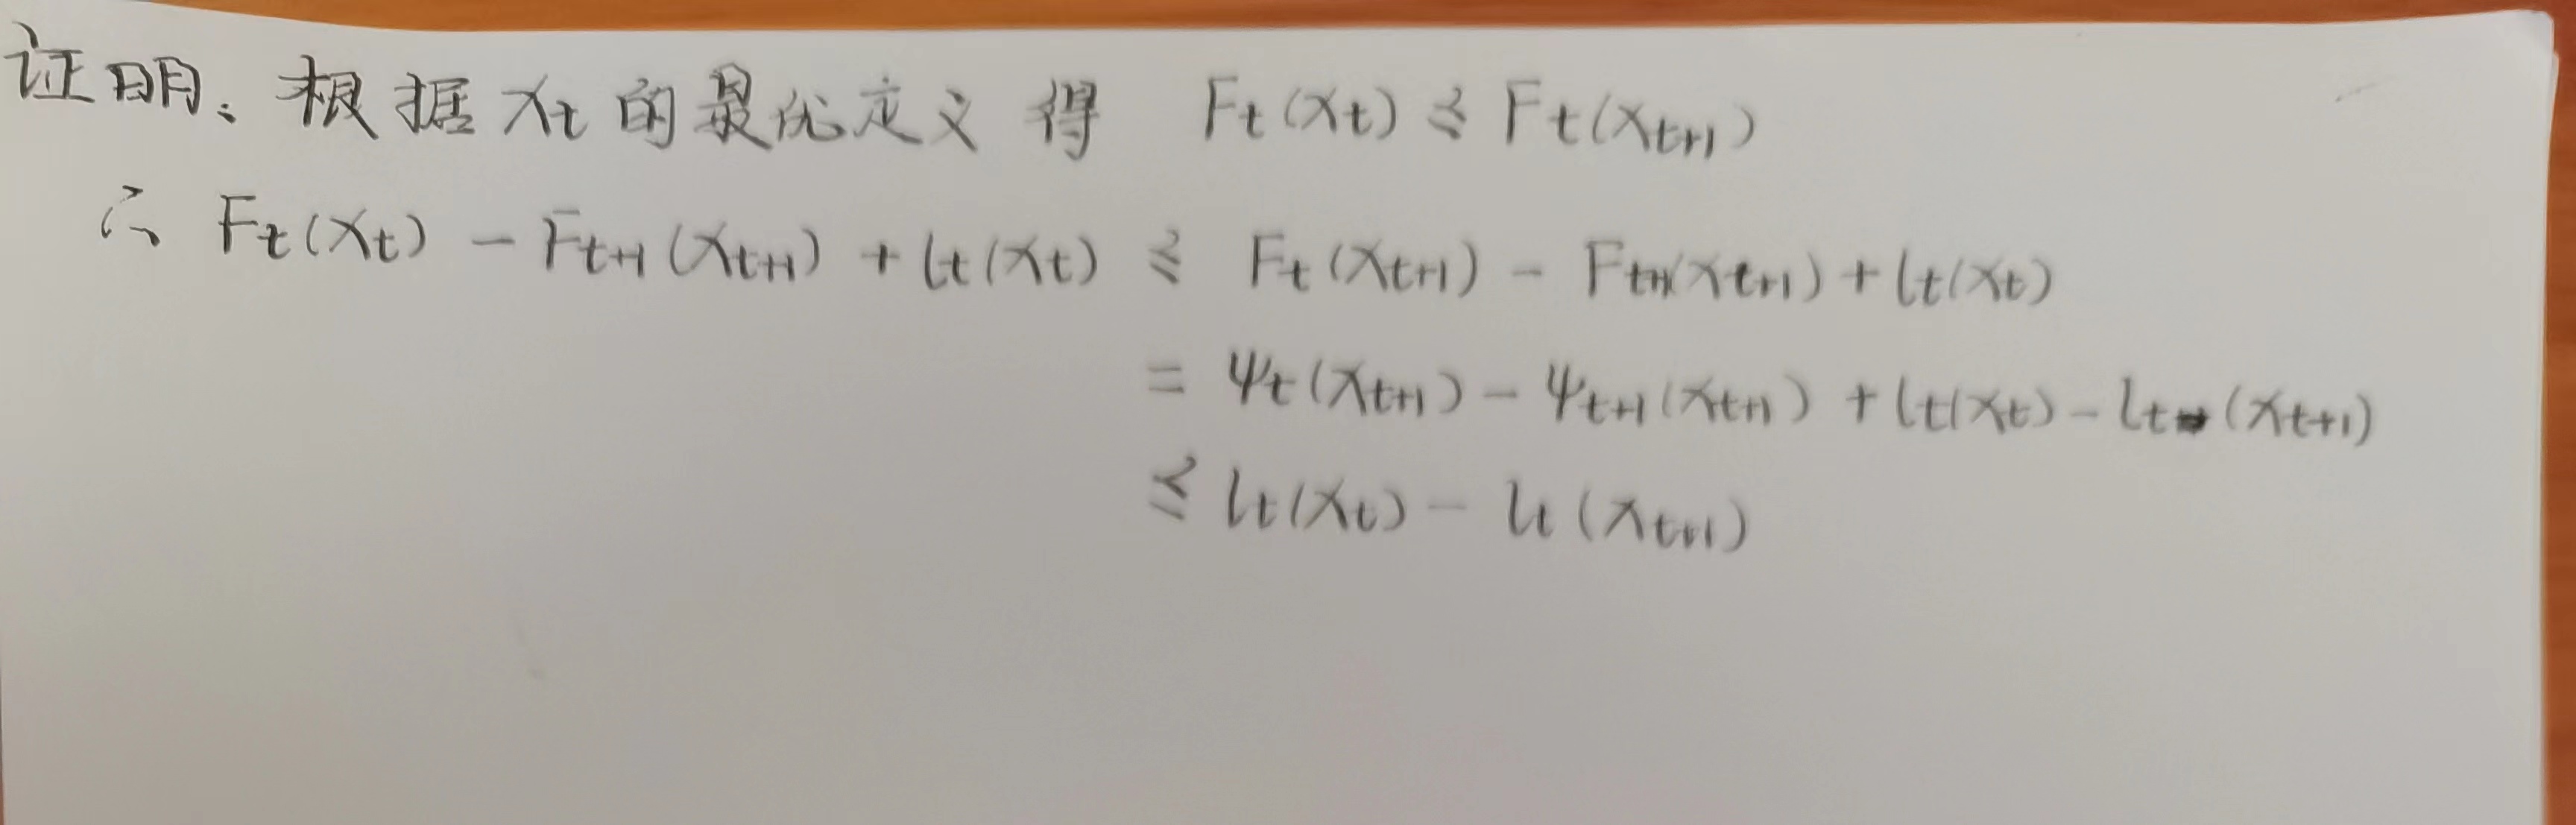 证明：根据 x_t 的最优定义得 F_t(x_t) ≤ F_t(x_{t+1})
∴ F_t(x_t) - F_{t+1}(x_{t+1}) + l_t(x_t) ≤ F_t(x_{t+1}) - F_{t+1}(x_{t+1}) + l_t(x_t)
= ψ_t(x_{t+1}) - ψ_{t+1}(x_{t+1}) + l_t(x_t) - l_t(x_{t+1})
≤ l_t(x_t) - l_t(x_{t+1})